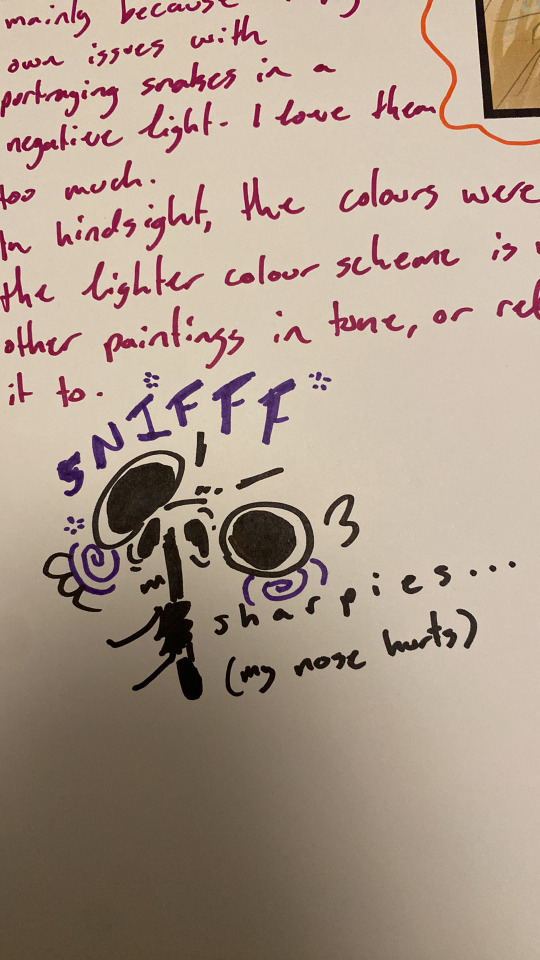 mainly because
own issues with
portraying snakes in a
negative light. I love them
too much.
In hindsight, the colours were
the lighter colour scheme is
other paintings in tone, or rel
it to.
*SNIFFF*
sharpies...
(my nose hurts)